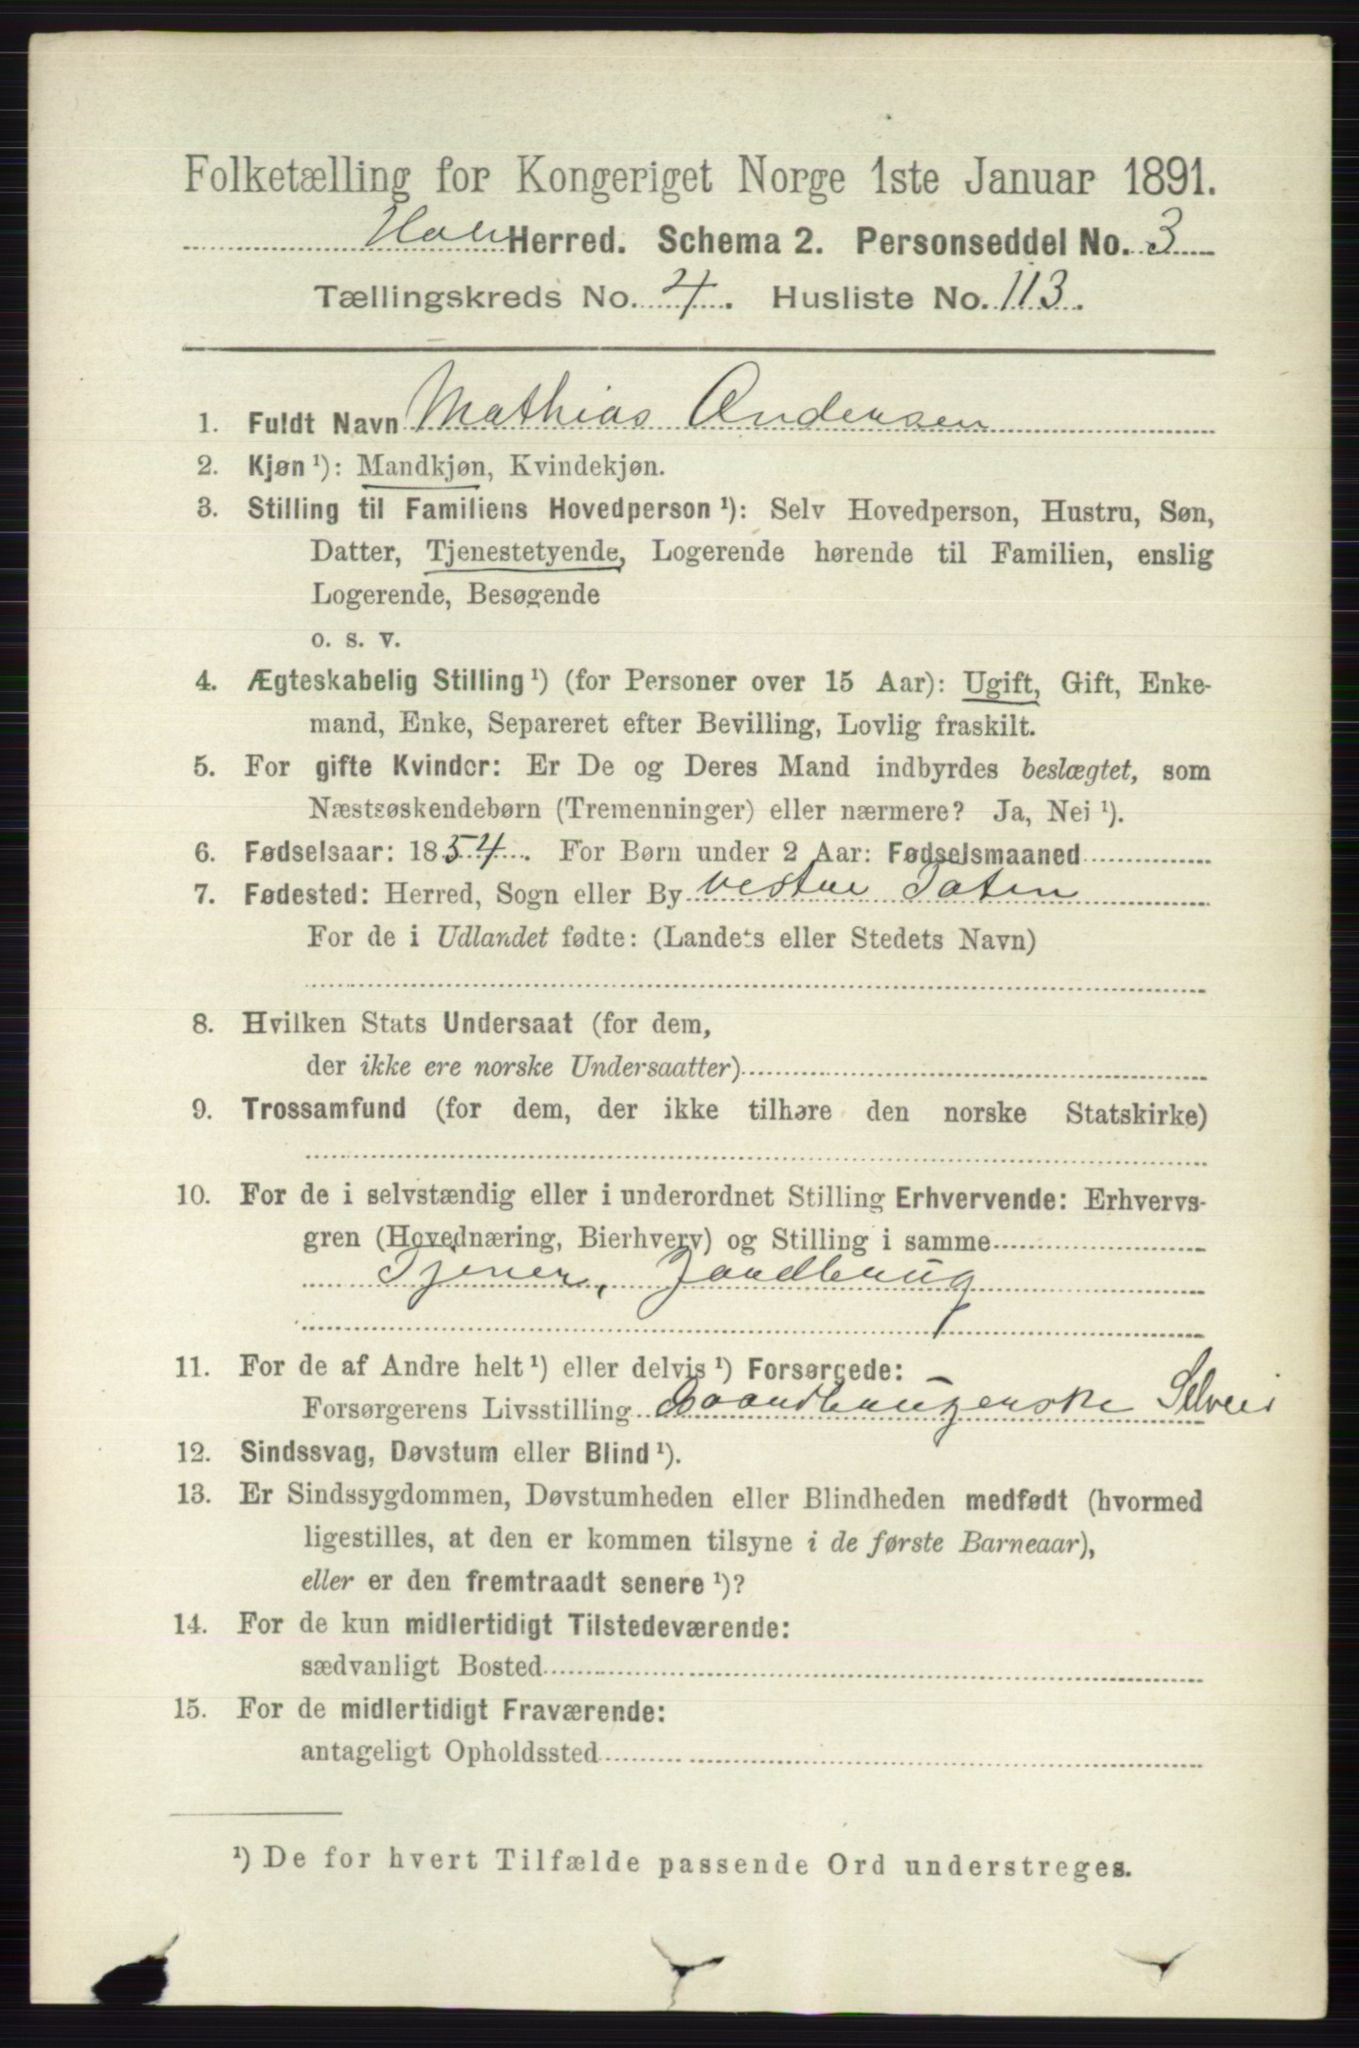 Folketælling for Kongeriget Norge 1ste Januar 1891.
Hole Herred. Schema 2. Personseddel No. 3
Tællingskreds No. 4. Husliste No. 113.
1. Fuldt Navn Mathias Andersen
2. Kjøn ¹): Mandkjøn, Kvindekjøn.
3. Stilling til Familiens Hovedperson ¹): Selv Hovedperson, Hustru, Søn,
Datter, Tjenestetyende, Logerende hørende til Familien, enslig
Logerende, Besøgende
o. s. v.
4. Ægteskabelig Stilling ¹) (for Personer over 15 Aar): Ugift, Gift, Enke-
mand, Enke, Separeret efter Bevilling, Lovlig fraskilt.
5. For gifte Kvinder: Er De og Deres Mand indbyrdes beslægtet, som
Næstsøskendebørn (Tremenninger) eller nærmere? Ja, Nei ¹).
6. Fødselsaar: 1854. For Børn under 2 Aar: Fødselsmaaned
7. Fødested: Herred, Sogn eller By vestre Toten
For de i Udlandet fødte: (Landets eller Stedets Navn)
8. Hvilken Stats Undersaat (for dem,
der ikke ere norske Undersaatter)
9. Trossamfund (for dem, der ikke tilhøre den norske Statskirke)
10. For de i selvstændig eller i underordnet Stilling Erhvervende: Erhvervs-
gren (Hovednæring, Bierhverv) og Stilling i samme
Tjener, Jordbrug
11. For de af Andre helt ¹) eller delvis ¹) Forsørgede:
Forsørgerens Livsstilling Selveier
12. Sindssvag, Døvstum eller Blind ¹).
13. Er Sindssygdommen, Døvstumheden eller Blindheden medfødt (hvormed
ligestilles, at den er kommen tilsyne i de første Barneaar),
eller er den fremtraadt senere ¹)?
14. For de kun midlertidigt Tilstedeværende:
sædvanligt Bosted
15. For de midlertidigt Fraværende:
antageligt Opholdssted
¹) De for hvert Tilfælde passende Ord understreges.